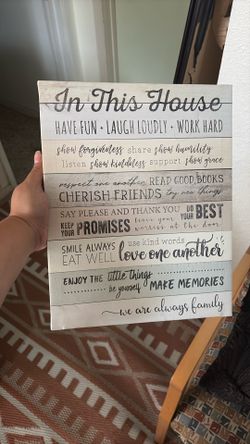 In This House
HAVE FUN • LAUGH LOUDLY • WORK HARD
show forgiveness share show humility
listen show kindness support show grace
respect one another READ GOOD BOOKS
CHERISH FRIENDS try new things
SAY PLEASE AND THANK YOU DO YOUR BEST
KEEP YOUR PROMISES leave your worries at the door
SMILE ALWAYS use kind words
EAT WELL love one another
ENJOY THE little things
be yourself MAKE MEMORIES
we are always family